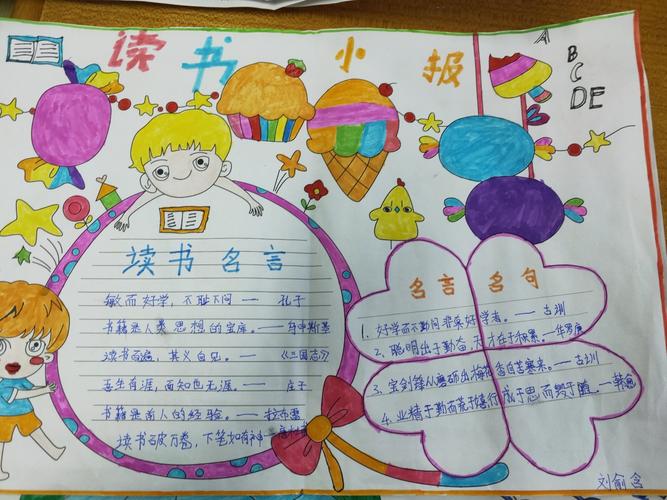 读书小报
A
B
C
DE
读书名言
敏而好学，不耻下问 —— 孔子
书籍是人类思想的宝库。——
读书百遍，其义自见。——《三国志》
吾生有涯，而知也无涯。—— 庄子
书籍是前人的经验。——
读书破万卷，下笔如有神 ——
名言名句
1、好学而不勤问非真好学者。—— 古训
2、聪明出于勤奋，天才在于积累。—— 华罗庚
3、宝剑锋从磨砺出，梅花香自苦寒来。—— 古训
4、业精于勤而荒于嬉，行成于思而毁于随。—— 韩愈
刘俞含